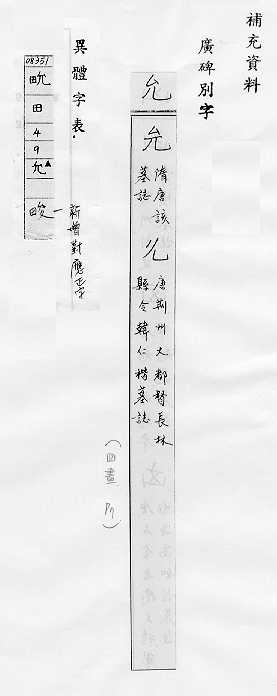 補充資料
廣碑別字
允
允 隋唐該墓誌
唐荊州大都督長林縣令韓仁楷墓誌
(四畫 P7)
異體字表
08351
畂
田
4
9
允▲
畯
新增對應正字